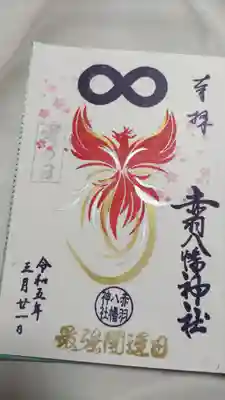 奉拝
赤羽八幡神社
寅の日
赤羽八幡神社
最強開運日
令和五年
三月廿一日